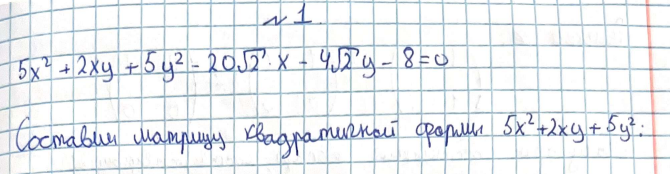 №1.
5x² + 2xy + 5y² - 20√2 · x - 4√2 y - 8 = 0
Составим матрицу квадратичной формы 5x²+2xy+5y²: